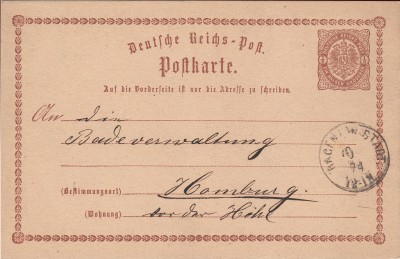 Deutsche Reichs-Post.
Postkarte.
Auf die Vorderseite ist nur die Adresse zu schreiben.
An die
Badeverwaltung
(Bestimmungsort) Homburg.
(Wohnung) vor der Höhe
HAGEN I. W. STADT